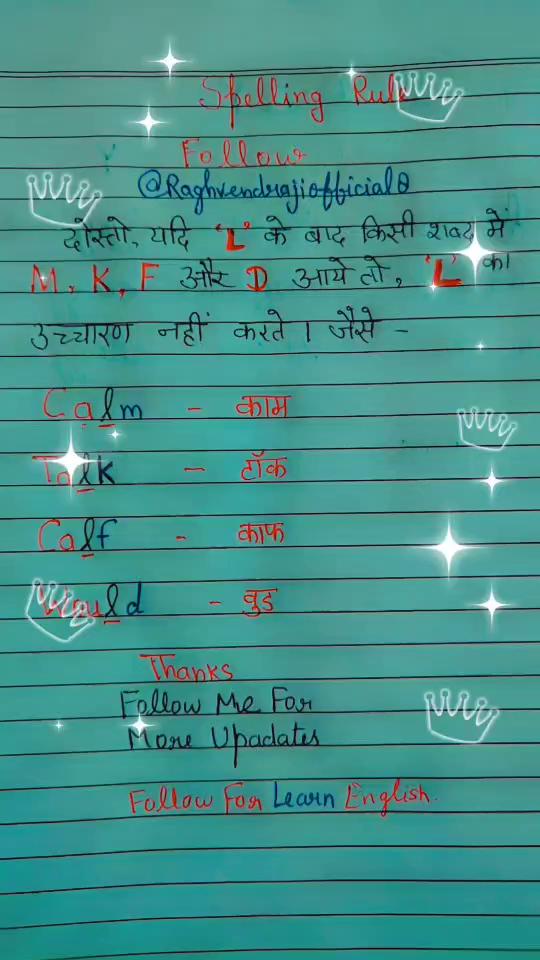 Spelling Rule
Follow
@Raghvendrajiofficial0
दोस्तो, यदि 'L' के बाद किसी शब्द में
M, K, F और D आये तो, 'L' का
उच्चारण नहीं करते। जैसे -
Calm - काम
Talk - टॉक
Calf - काफ
Would - वुड
Thanks
Follow Me For
More Upadates
Follow For Learn English.